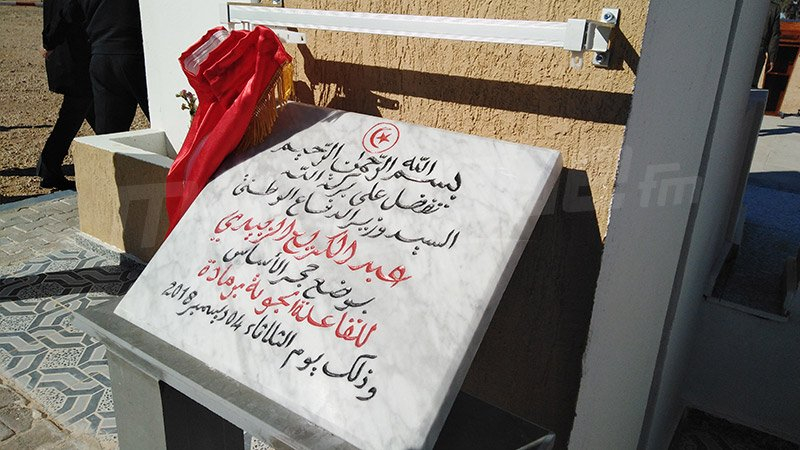 بسم الله الرحمن الرحيم
تفضل على بركة الله
السيد وزير الدفاع الوطني
عبد الكريم الزبيدي
بوضع حجر الأساس
للقاعدة الجوية برمادة
وذلك يوم الثلاثاء 04 ديسمبر 2018
fm